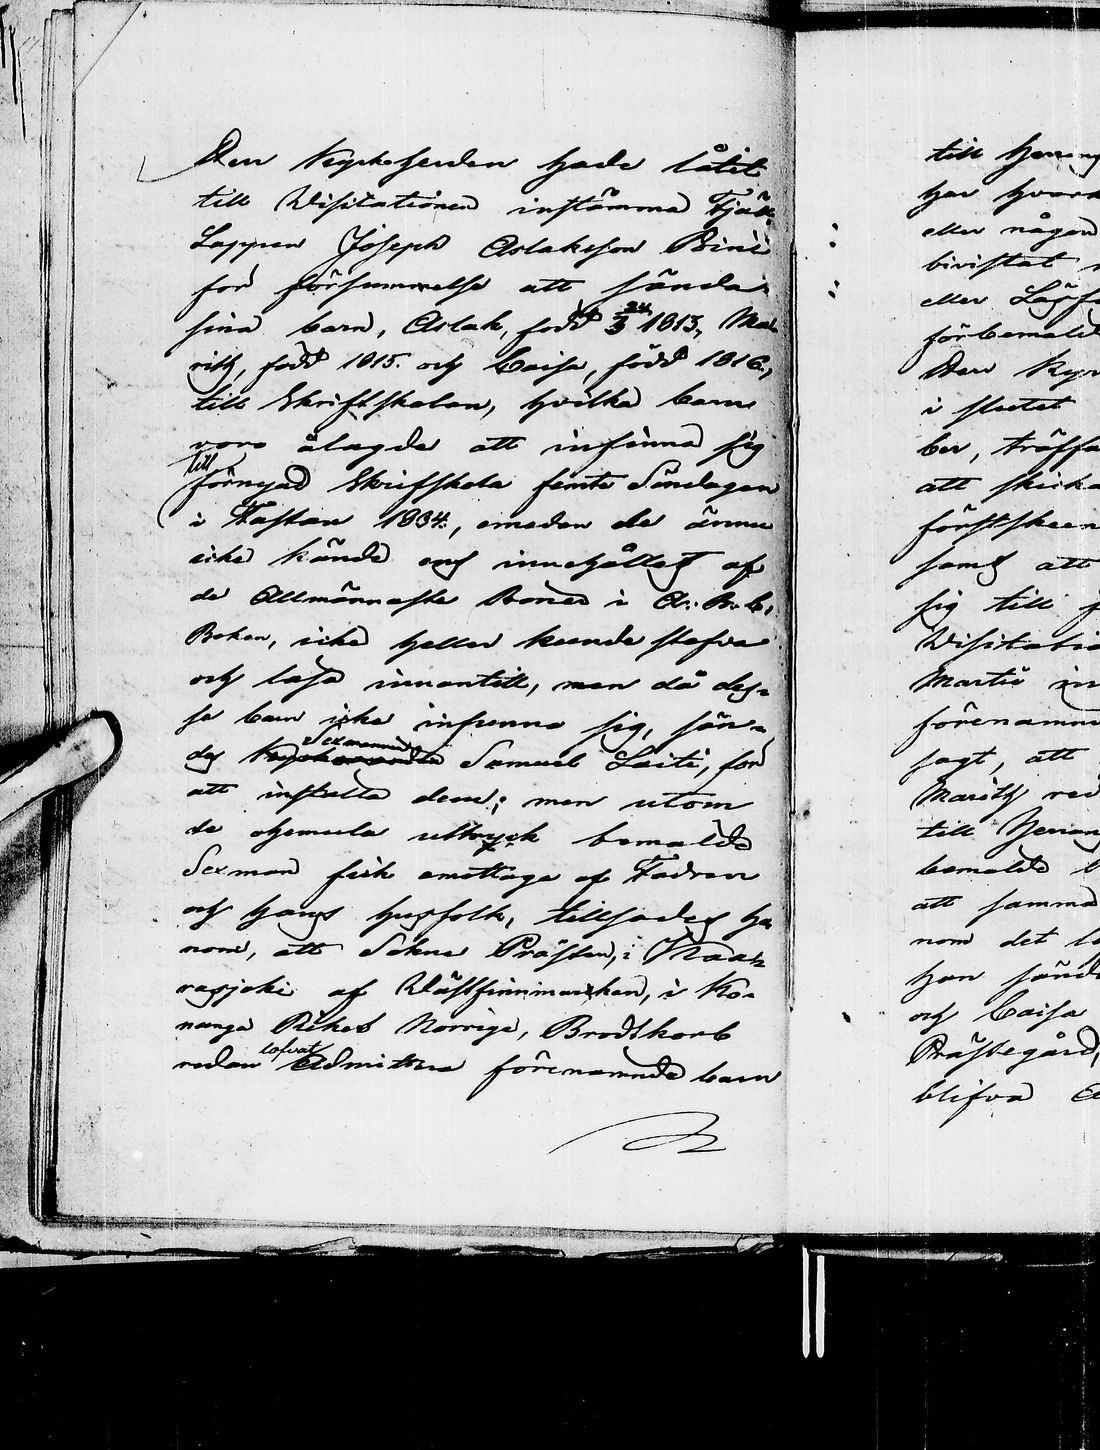 Den Kyrkoherden hade låtit
till Visitationen instämma Fjäll-
Lappen Joseph Aslaksson
för försummelse att sända
sina barn, Aslak, född 24/3 1813, Ma-
rith, född 1815. och Caisa, född 1816.,
till Skriftskolan, hvilka barn
voro ålagde att infinna sig
till
förnyad Skriftskola femte Söndagen
i Fastan 1834., emedan de ännu
icke kände ens innehållet af
de Allmännaste Böner i A. B. C.
Boken, icke heller kunde stafva
och läsa innantill, men då des-
sa barn icke infunno sig, sän-
Sexmannen
des Samuel Laiti, för
att inställa dem; men utom
de uttryck bemälde
Sexman fick emottaga af Fadren
och hans husfolk, tillsades ho-
nom, att Sokne Prästen, i Kaa-
rasjoki af Wästfinnmarken, i Ko-
nunga Riket Norrige, Brodtkorb
lofvat
redan admittera förenämnde barn

till
har
eller någon
bivistat
eller
förbemälde
Den
i stället
ber, träffa
att skicka
samt att
sig till
Visitatio
Martii in
förenämn
sagt, att
Marith
till
bemälde
att samma
nom det
han sände
och Caisa
Prästegård,
blifva